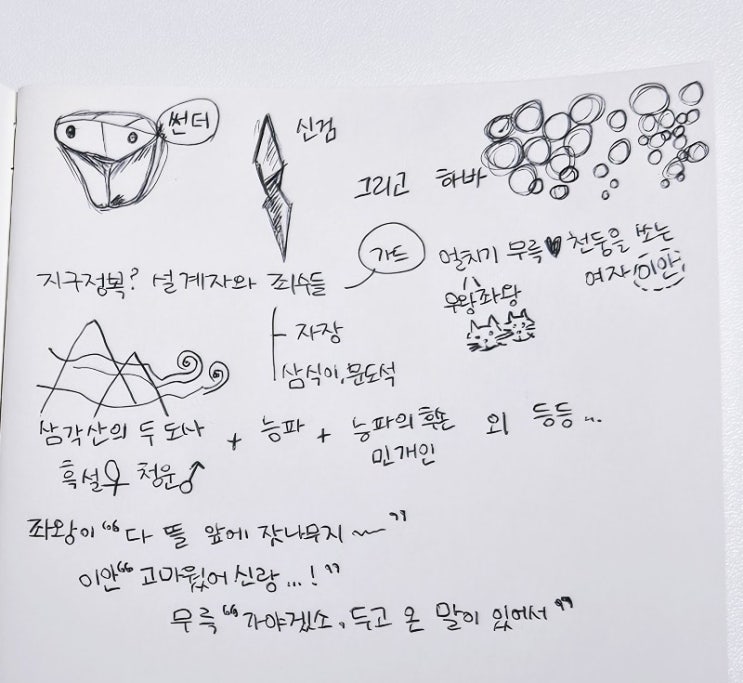 썬더
신검
그리고 하바
지구정복? 설계자와 죄수들
가드
얼치기 무륵♥천둥을 쏘는
여자 이안
우왕좌왕
자장
삼식이, 문도석
삼각산의 두 도사 + 능파 + 능파의 후손 외 등등..
흑설♀ 청운♂
민개인
좌왕이 “다 뜰 앞에 잣나무지~”
이안 “고마웠어 신랑...!”
무륵 “가야겠소, 두고 온 말이 있어서”